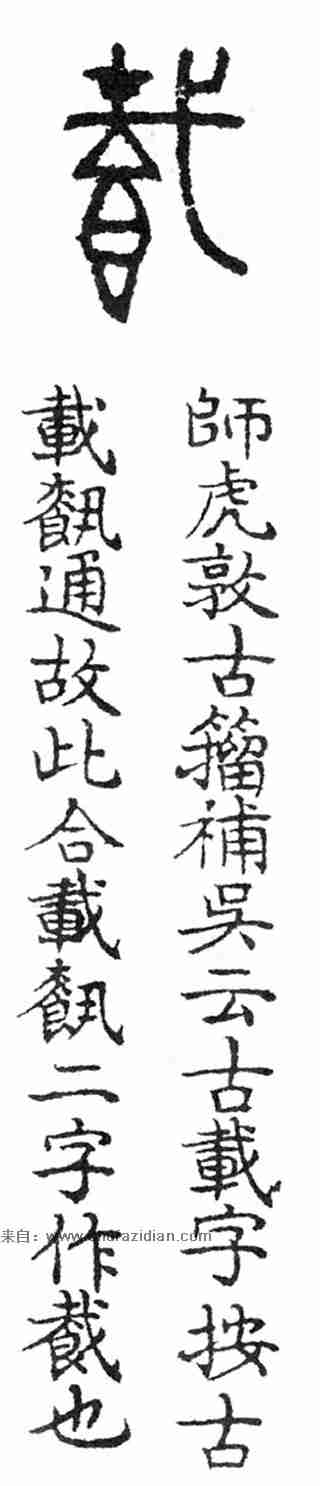 師虎敦古籀補吳云古載字按古
載𩛥通故此合載𩛥二字作也
来自：www.shufazidian.com